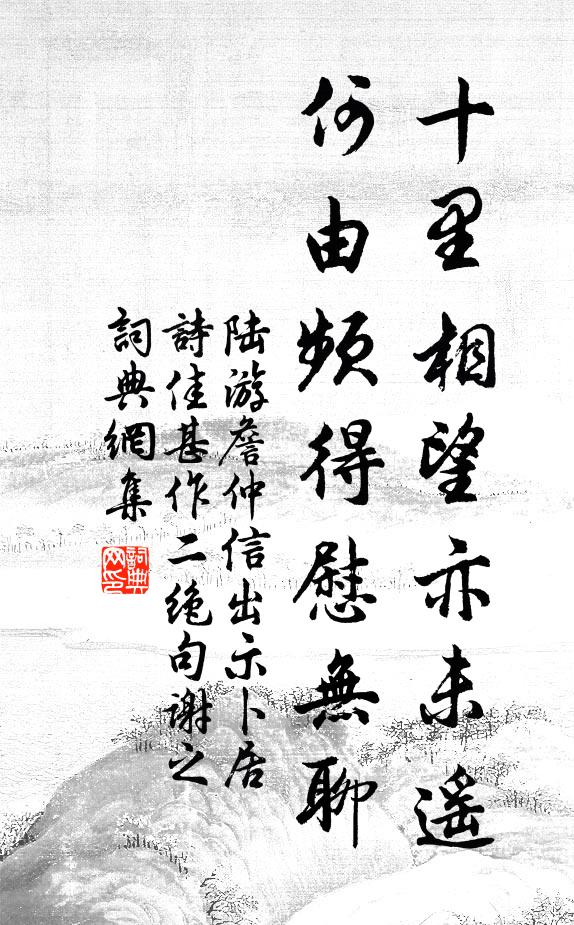 十里相望亦未遥
何由頻得慰無聊
陆游詹仲信出示卜居
詩佳甚作二绝句谢之
詞典網集
詞典网印